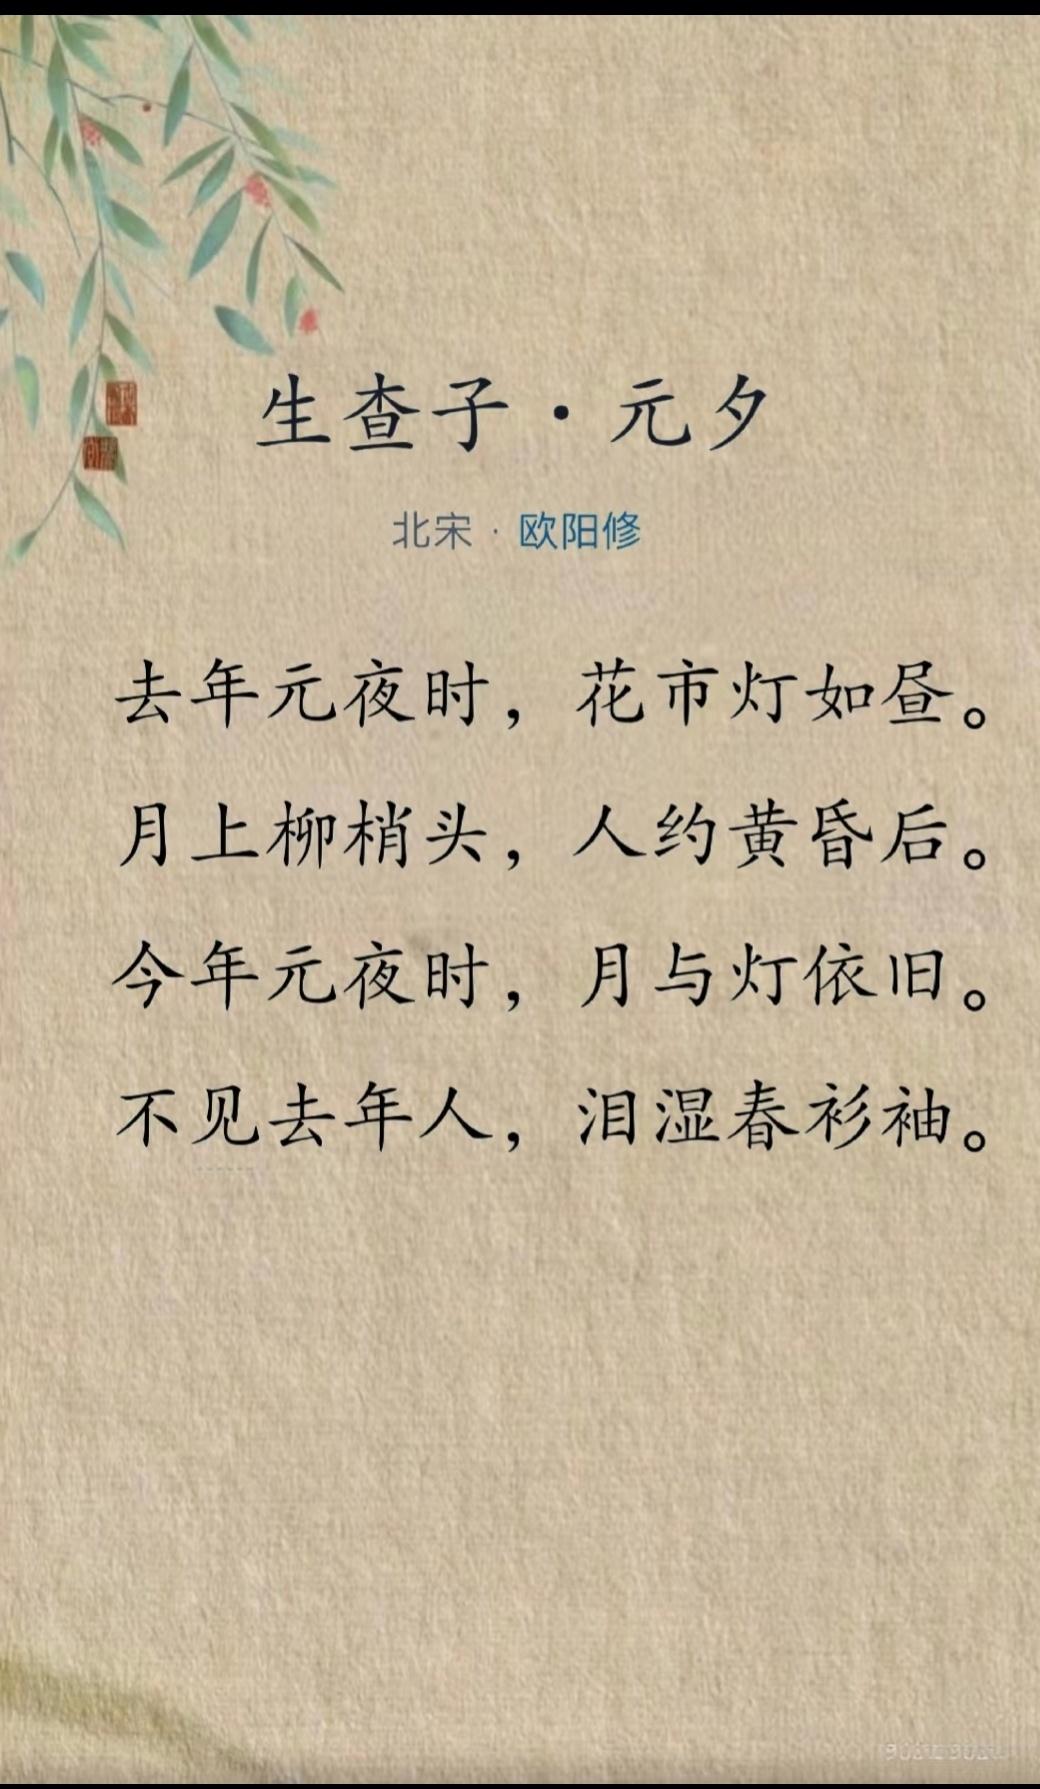 生查子·元夕
北宋·欧阳修
去年元夜时，花市灯如昼。
月上柳梢头，人约黄昏后。
今年元夜时，月与灯依旧。
不见去年人，泪湿春衫袖。